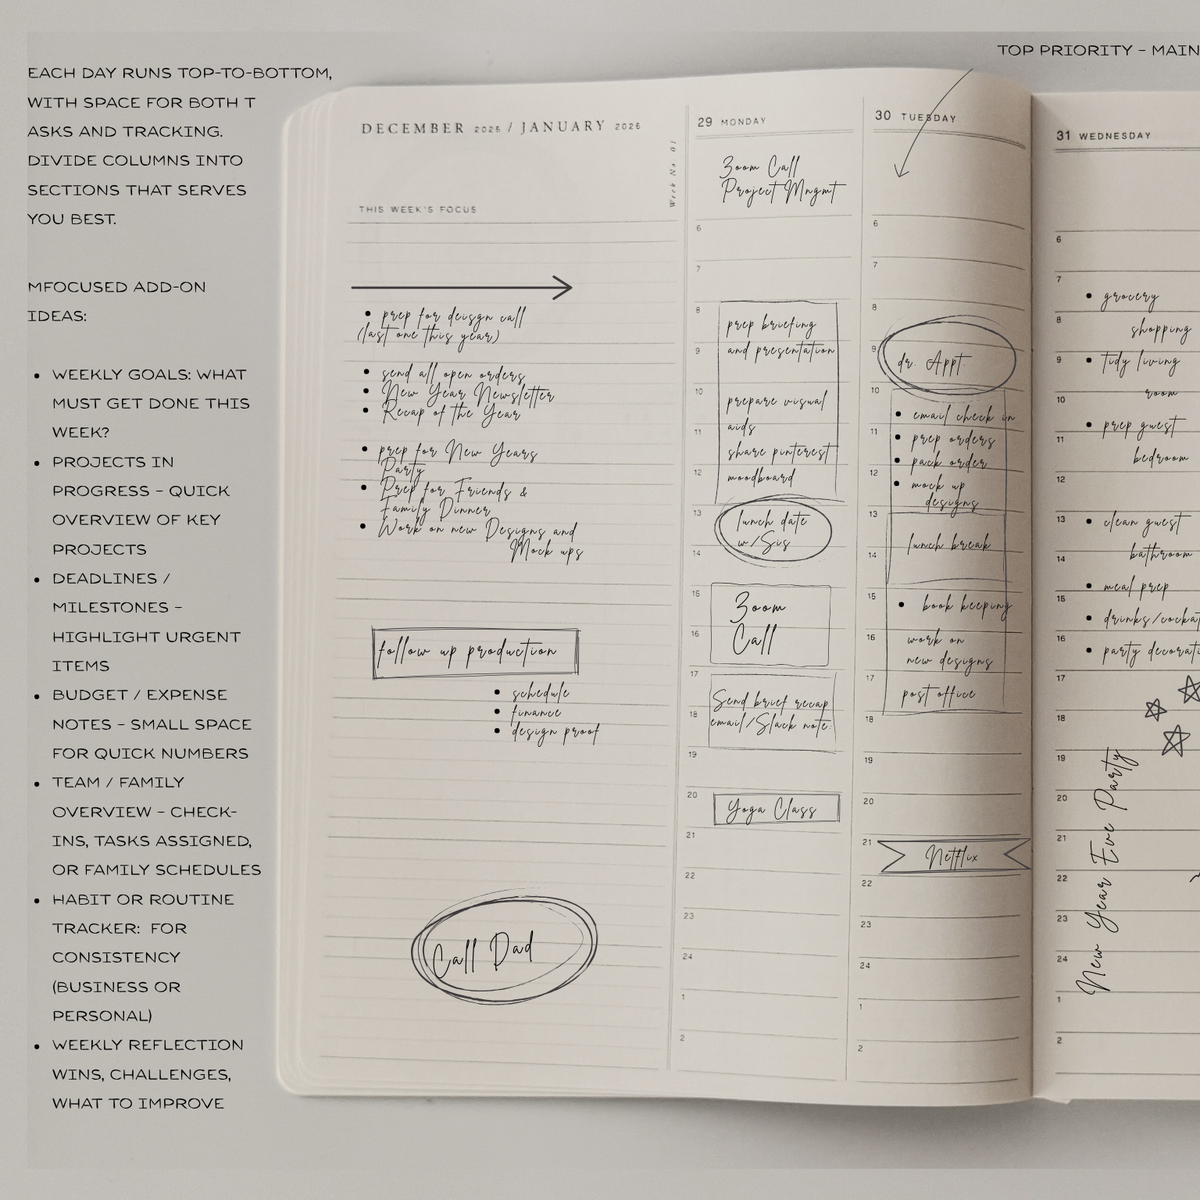 TOP PRIORITY - MAIN
EACH DAY RUNS TOP-TO-BOTTOM,
WITH SPACE FOR BOTH T
ASKS AND TRACKING.
DIVIDE COLUMNS INTO
SECTIONS THAT SERVES
YOU BEST.
MFOCUSED ADD-ON
IDEAS:
• WEEKLY GOALS: WHAT
MUST GET DONE THIS
WEEK?
• PROJECTS IN
PROGRESS - QUICK
OVERVIEW OF KEY
PROJECTS
• DEADLINES /
MILESTONES -
HIGHLIGHT URGENT
ITEMS
• BUDGET / EXPENSE
NOTES - SMALL SPACE
FOR QUICK NUMBERS
• TEAM / FAMILY
OVERVIEW - CHECK-
INS, TASKS ASSIGNED,
OR FAMILY SCHEDULES
• HABIT OR ROUTINE
TRACKER: FOR
CONSISTENCY
(BUSINESS OR
PERSONAL)
• WEEKLY REFLECTION
WINS, CHALLENGES,
WHAT TO IMPROVE
DECEMBER 2025 / JANUARY 2026
Week No. 01
THIS WEEK'S FOCUS
• prep for deisgn call
(last one this year)
• send all open orders
• New Year Newsletter
• Recap of the Year
• prep for New Years
Party
• Prep for Friends &
Family Dinner
• Work on new Designs and
Mock ups
follow up production
• schedule
• finance
• design proof
Call Dad
29 MONDAY
Zoom Call
Project Mngmt
6
7
8
prep briefing
9
and presentation
10
prepare visual
aids
11
share pinterest
12
moodboard
13
lunch date
w/Sis
14
15
Zoom
16
Call
17
Send brief recap
18
email/Slack note.
19
20
Yoga Class
21
22
23
24
1
2
30 TUESDAY
6
7
8
9
dr. Appt.
10
• email check in
11
• prep orders
• pack order
12
• mock up
designs
13
lunch break
14
15
• book keeping
16
work on
new designs
17
post office
18
19
20
21
Netflix
22
23
24
1
2
31 WEDNESDAY
6
7
• grocery
8
shopping
9
• tidy living
room
10
• prep guest
11
bedroom
12
13
• clean guest
14
bathroom
• meal prep
15
• drinks/cockta
16
• party decorati
17
18
19
20
21
22
23
24
1
2
New Year Eve Party